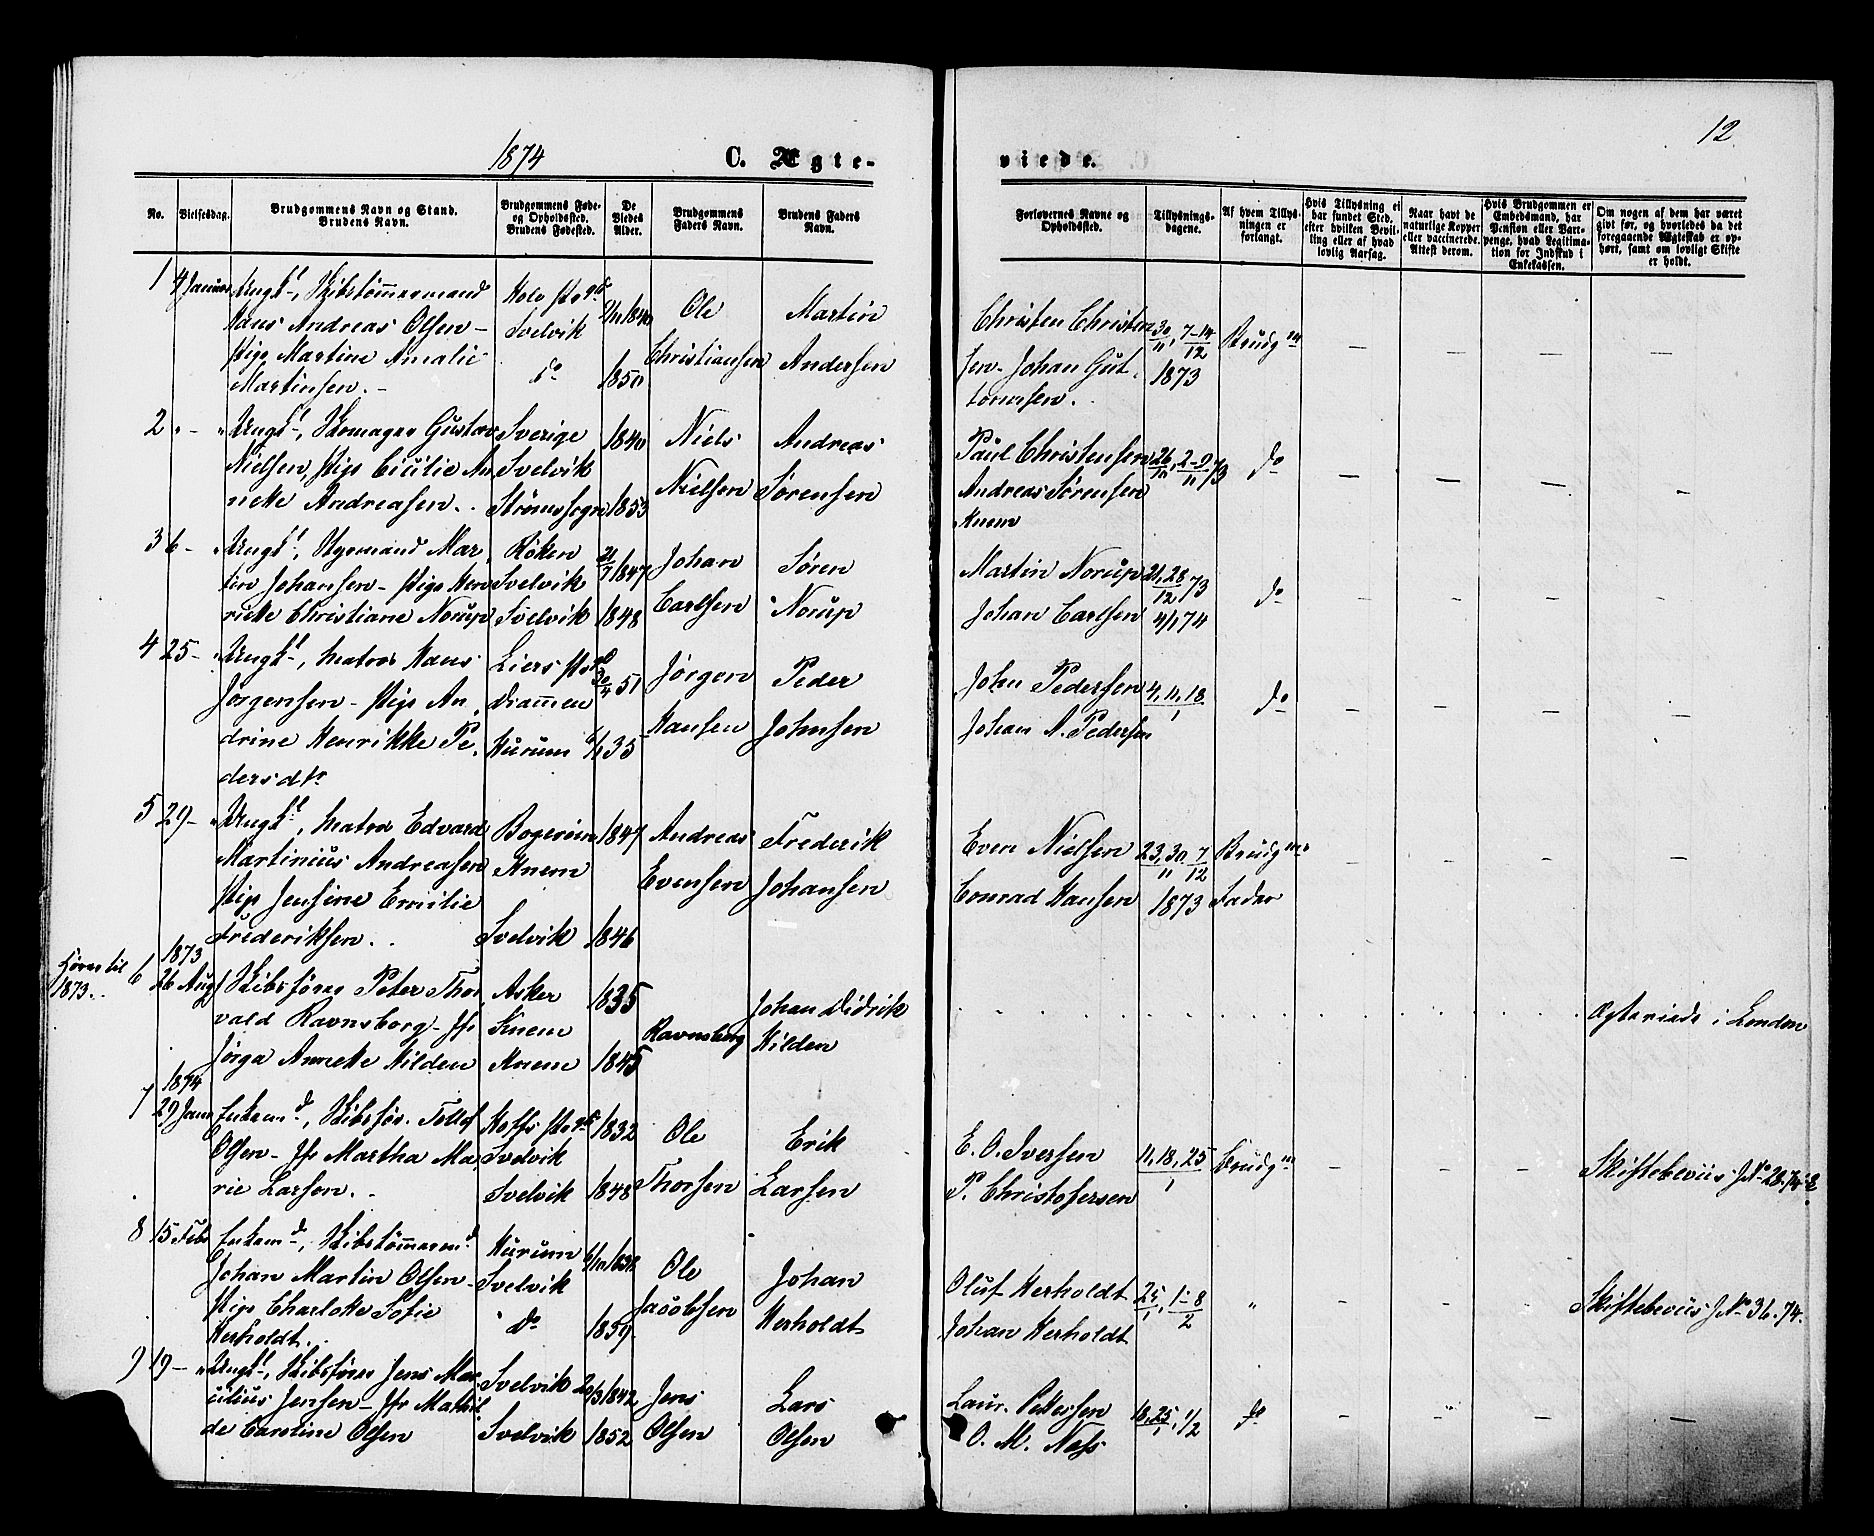 1874
C. Ægte-
viede.
12
No.
Vielsesdag.
Brudgommens Navn og Stand.
Brudens Navn.
Brudgommens Føde-
og Opholdssted.
Brudens Fødested.
De
Viedes
Alder.
Brudgommens
Faders Navn.
Brudens Faders
Navn.
Forlovernes Navne og
Opholdssted.
Tillysnings-
dagene.
Af hvem Tillys-
ningen er
forlangt.
Hvis Tillysning ei
har fundet Sted,
efter hvilken Bevil-
ling eller af hvad
lovlig Aarsag.
Naar havt de
naturlige Kopper
eller vaccinerede.
Attest derom.
Hvis Brudgommen er
Embedsmand, har
Pension eller Vart-
penge, hvad Legitima-
tion for Indskud i
Enkekassen.
Om nogen af dem har været
gift før, og hvorledes da det
foregaaende Ægteskab er op-
hørt, samt om lovligt Skifte
er holdt.
1 4 Januar Ungk., Skibstømmermand
Hans Andreas Olsen - Svelvik 1840 Ole Martin
Pige Martine Amalie Christiansen Andersen
Martinsen. do 1850
Christen Christen- 30/11, 7-14/12 Brudgm
sen. Johan Gut- 1873
tormsen.
2 " - " Ungk., Skomager Gustav Sverige 1840 Niels Andreas
Nielsen, Pige Cicilie An- Svelvik
neke Andreasen. Strømsogn 1853 Nielsen Sørensen
Paul Christensen 26/10, 2-9/11 73 do
Andreas Sørensen
Knem
3 6 - " Ungk., Styrmand Mar- Røken 21/7 1847 Johan Søren
tin Johansen - Pige Hen- Svelvik
rieke Christiane Norup Svelvik 1848 Carlsen Norup
Martin Norup 21, 28/12 73 do
Johan Carlsen 4/1 74
4 25 - " Ungk., Matros Hans Liers 30/4 51 Jørgen Peder
Jørgensen - Pige An- Drammen
drine Henrikke Pe- Hurum 35 Hansen Johnsen
dersdtr
John Pedersen 4, 11, 18/1 do
Johan A. Pedersen
5 29 - " Ungk., Matros Edvard 1847 Andreas Frederik
Martinius Andreasen Knem
Pige Jensine Emilie Evensen Johansen
Frederiksen. Svelvik 1846
Even Nielsen 23, 30/11, 7/12 Brudgms
Conrad Hansen 1873 Fader
Hører til
1873.
1873
6 26 Aug Skibsfører Peter Thor- Asker 1835 Johan Didrik
vald Ravnsborg - Jfr Knem Ravnsborg Hilden
Jørga Anneke Hilden Knem 1845
Ægteviede i London
1874
7 29 Janu Enkemd, Skibsfør. Tollef 1832 Ole Erik
Olsen - Jfr Martha Ma- Svelvik
rie Larsen. Svelvik 1848 Thorsen Larsen
E. O. Iversen 11, 18, 25/1 Brudgm
P. Christofersen Skiftebeviis J No 28. 74
8 15 Febr Enkemd, Skibstømmermd Hurum Ole Johan
Johan Martin Olsen - Svelvik
Pige Charlotte Sofie do Jacobsen Herholdt
Herholdt. 1859
Oluf Herholdt 25/1, 1-8/2 "
Johan Herholdt Skiftebeviis J No 36. 74.
9 19 - " Ungk., Skibsfører Jens Mar- Svelvik 1842 Jens Lars
Jensen - Jfr Mathil-
de Caroline Olsen Svelvik 1852 Olsen Olsen
Laur. Pettersen 18, 25/1, 1/2 do
O. M. Næss